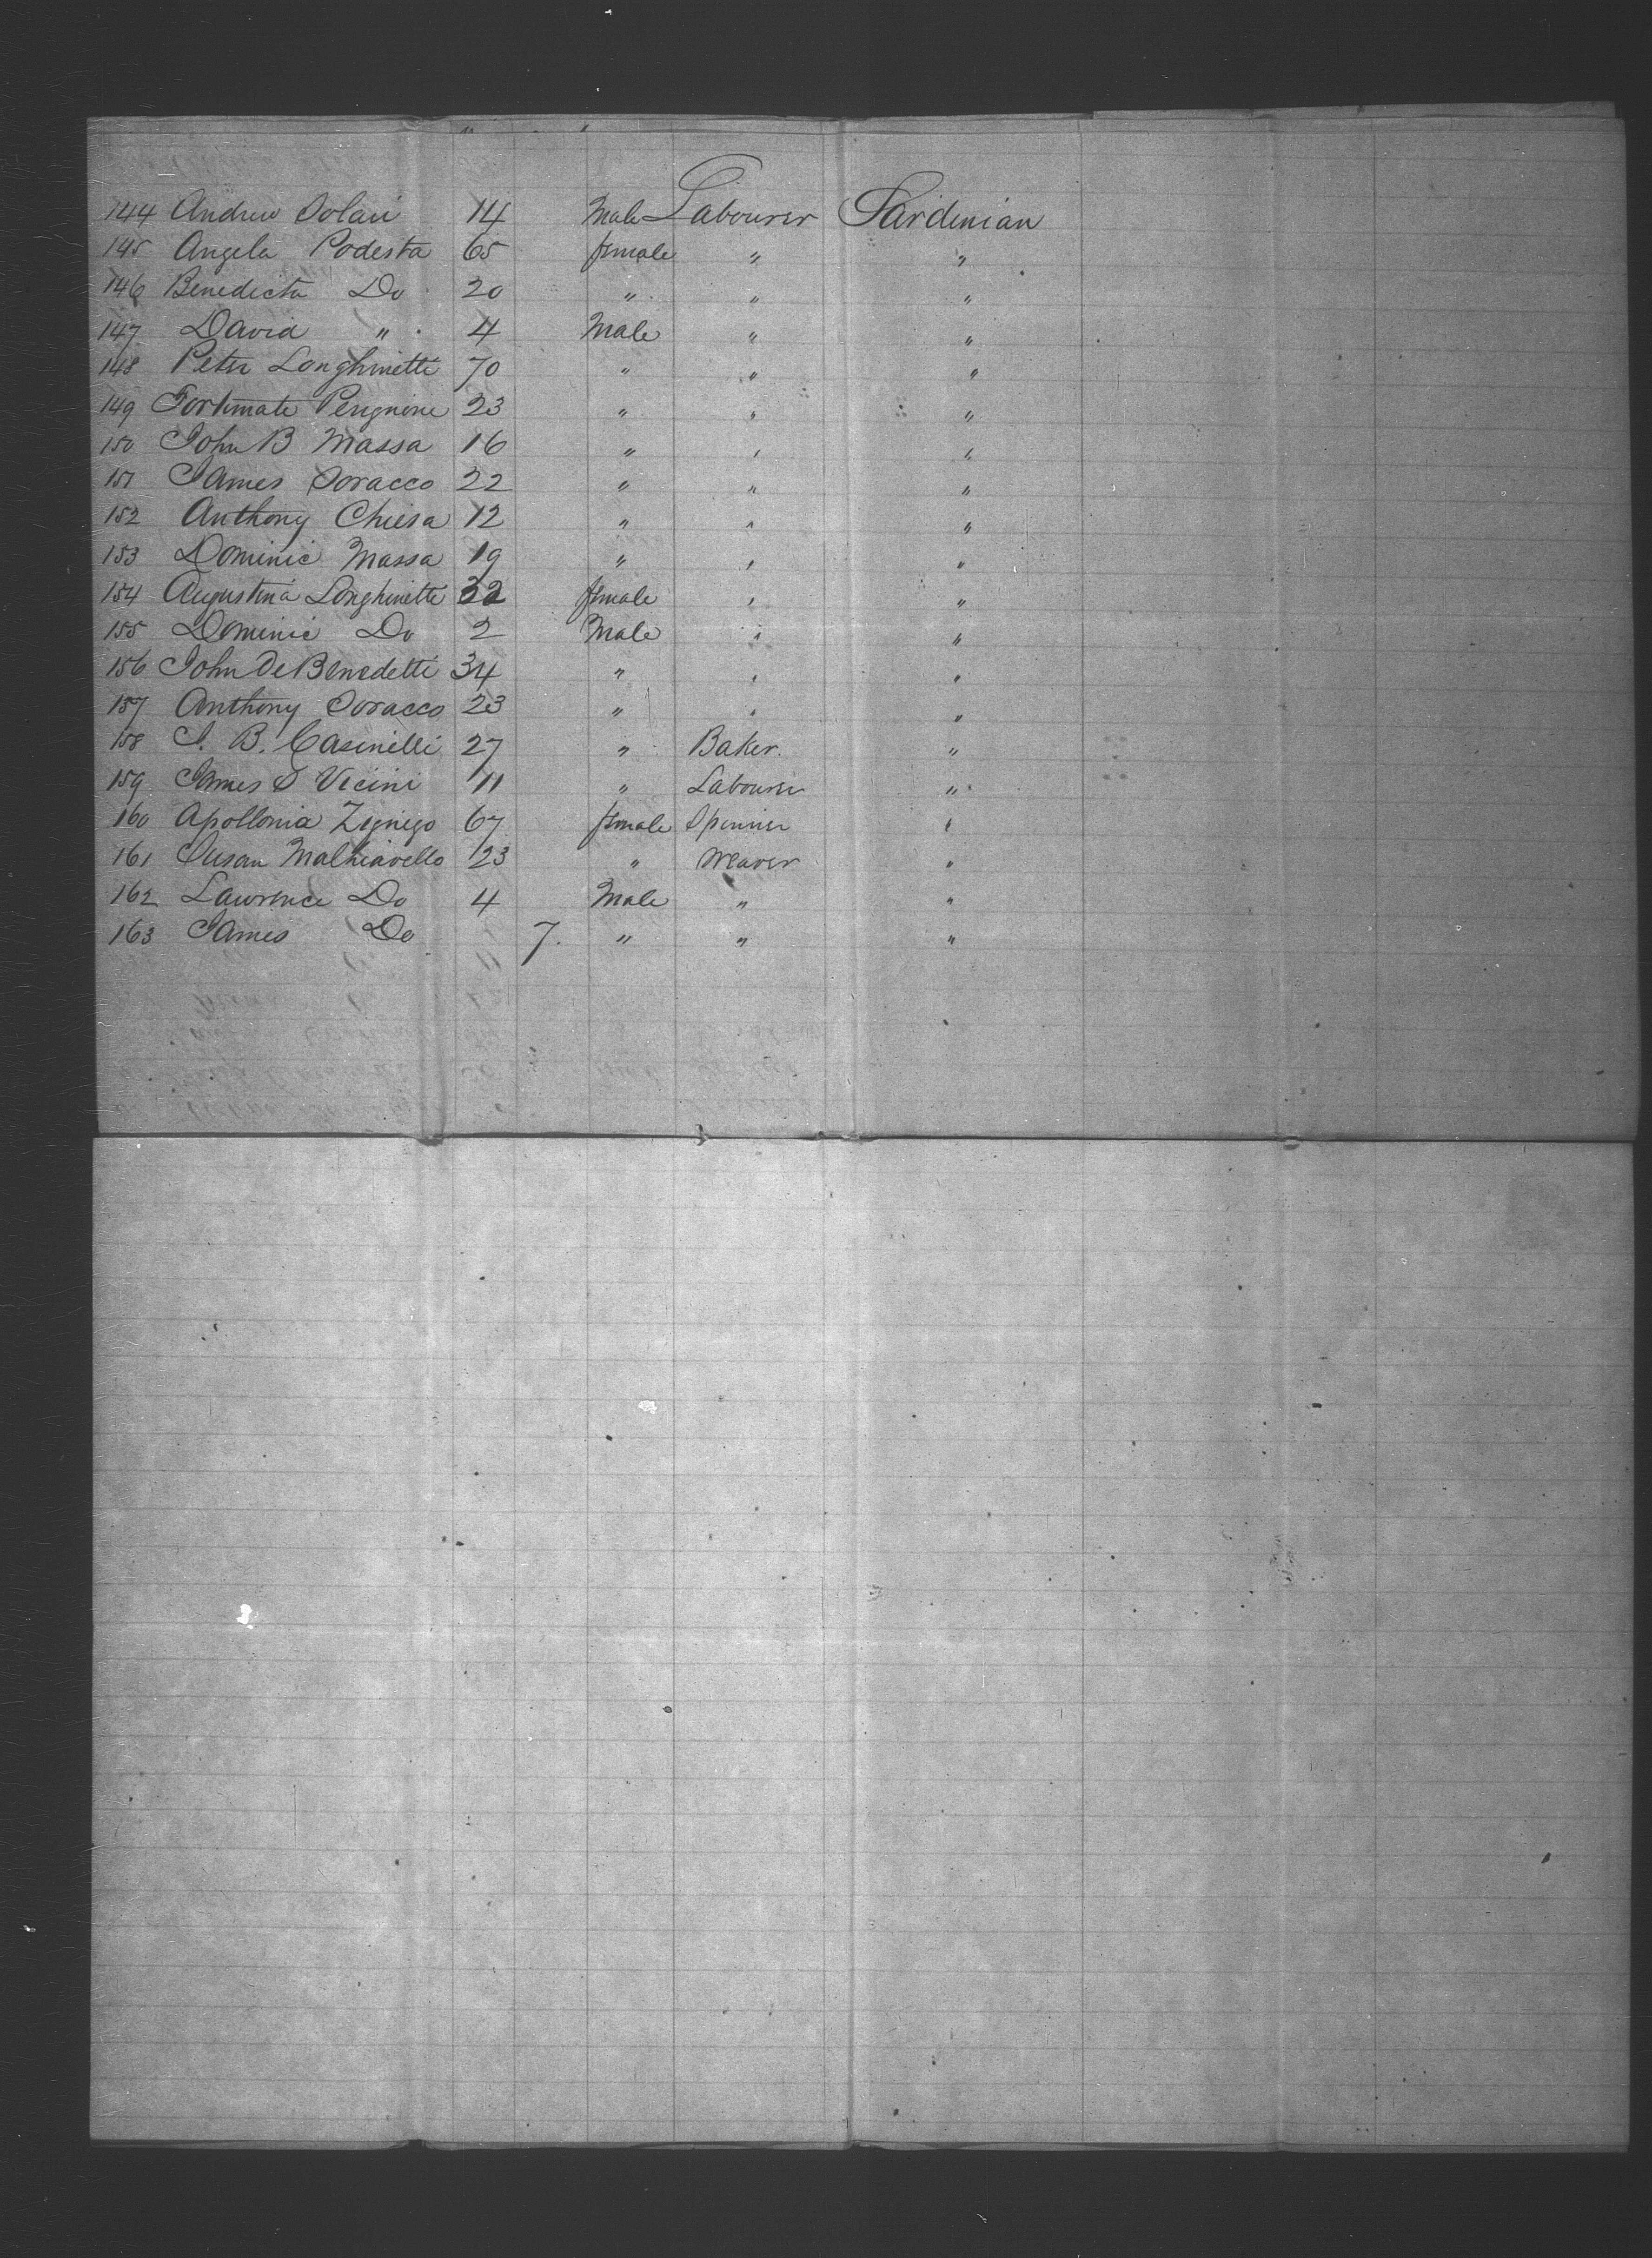 144 Andrew Solari 14 Male Labourer Sardinian
145 Angela Podesta 65 female " "
146 Benedicta Do 20 " " "
147 David " 4 Male " "
148 Peter Longhinetti 70 " " "
149 Fortunate Perignone 23 " " "
150 John B Massa 16 " " "
151 James Soracco 22 " " "
152 Anthony Chiesa 12 " " "
153 Dominic Massa 19 " " "
154 Augustina Longhinetti 32 female " "
155 Dominic Do 2 Male " "
156 John De Benedetti 34 " " "
157 Anthony Soracco 23 " " "
158 J. B. Casinelli 27 " Baker. "
159 James S Vicini 11 " Labourer "
160 Apollonia Zignego 67 female Spinner "
161 Susan Malhiavello 23 " Weaver "
162 Lawrence Do 4 Male " "
163 James Do 7. " " "